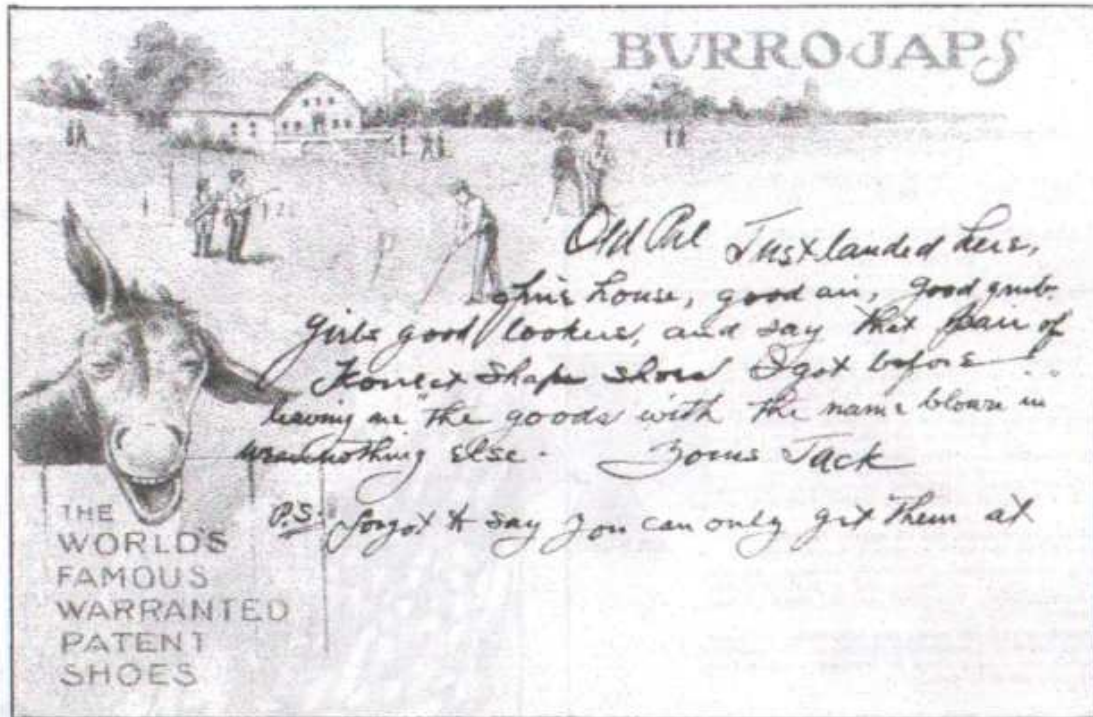 BURROJAPS
Old Pal Just landed here,
fine house, good air, good grub.
Girls good lookers, and say that pair of
Korrect Shape shoes I got before
leaving are "the goods with the name blown in
wear nothing else. Yours Jack
P.S. forgot to say you can only get them at
THE
WORLD'S
FAMOUS
WARRANTED
PATENT
SHOES